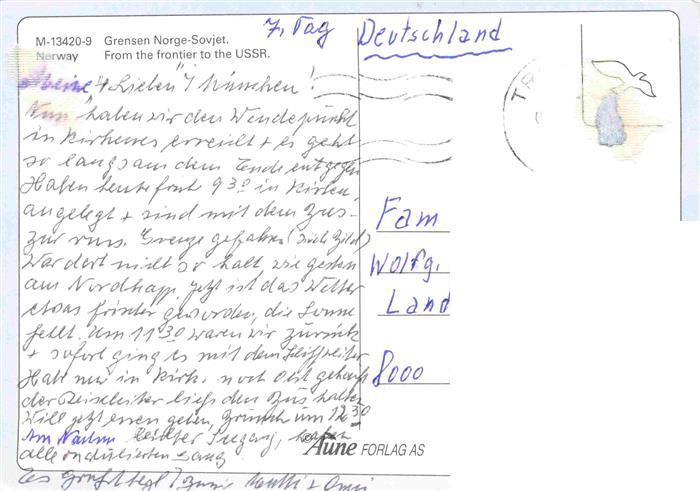 7. Tag Deutschland
M-13420-9 Grensen Norge-Sovjet.
Norway From the frontier to the USSR.
Meine 4 "Lieben" / München!
Nun haben wir den Wendepunkt
in Kirkenes erreicht + es geht
so langsam dem Ende entgegen
Haben heute früh 9 30 in Kirken.
angelegt + sind mit dem Bus
zur russ. Grenze gefahren (sieh Bild)
War dort nicht so kalt, wie gestern
am Nordkapp. Jetzt ist das Wetter
etwas frischer geworden, die Sonne
fehlt. Um 11 30 waren wir zurück
+ sofort ging es mit dem Schiff weiter
Habe nur in Kirk. noch Obst gekauft
der Reiseleiter ließ den Bus halten
Will jetzt essen gehen, Brunch um 12 30
Am Nachm. leichter Seegang,
alle
Es grüßt + Omi
Fam
Wolfg.
Land
8000
Aune FORLAG AS
TR